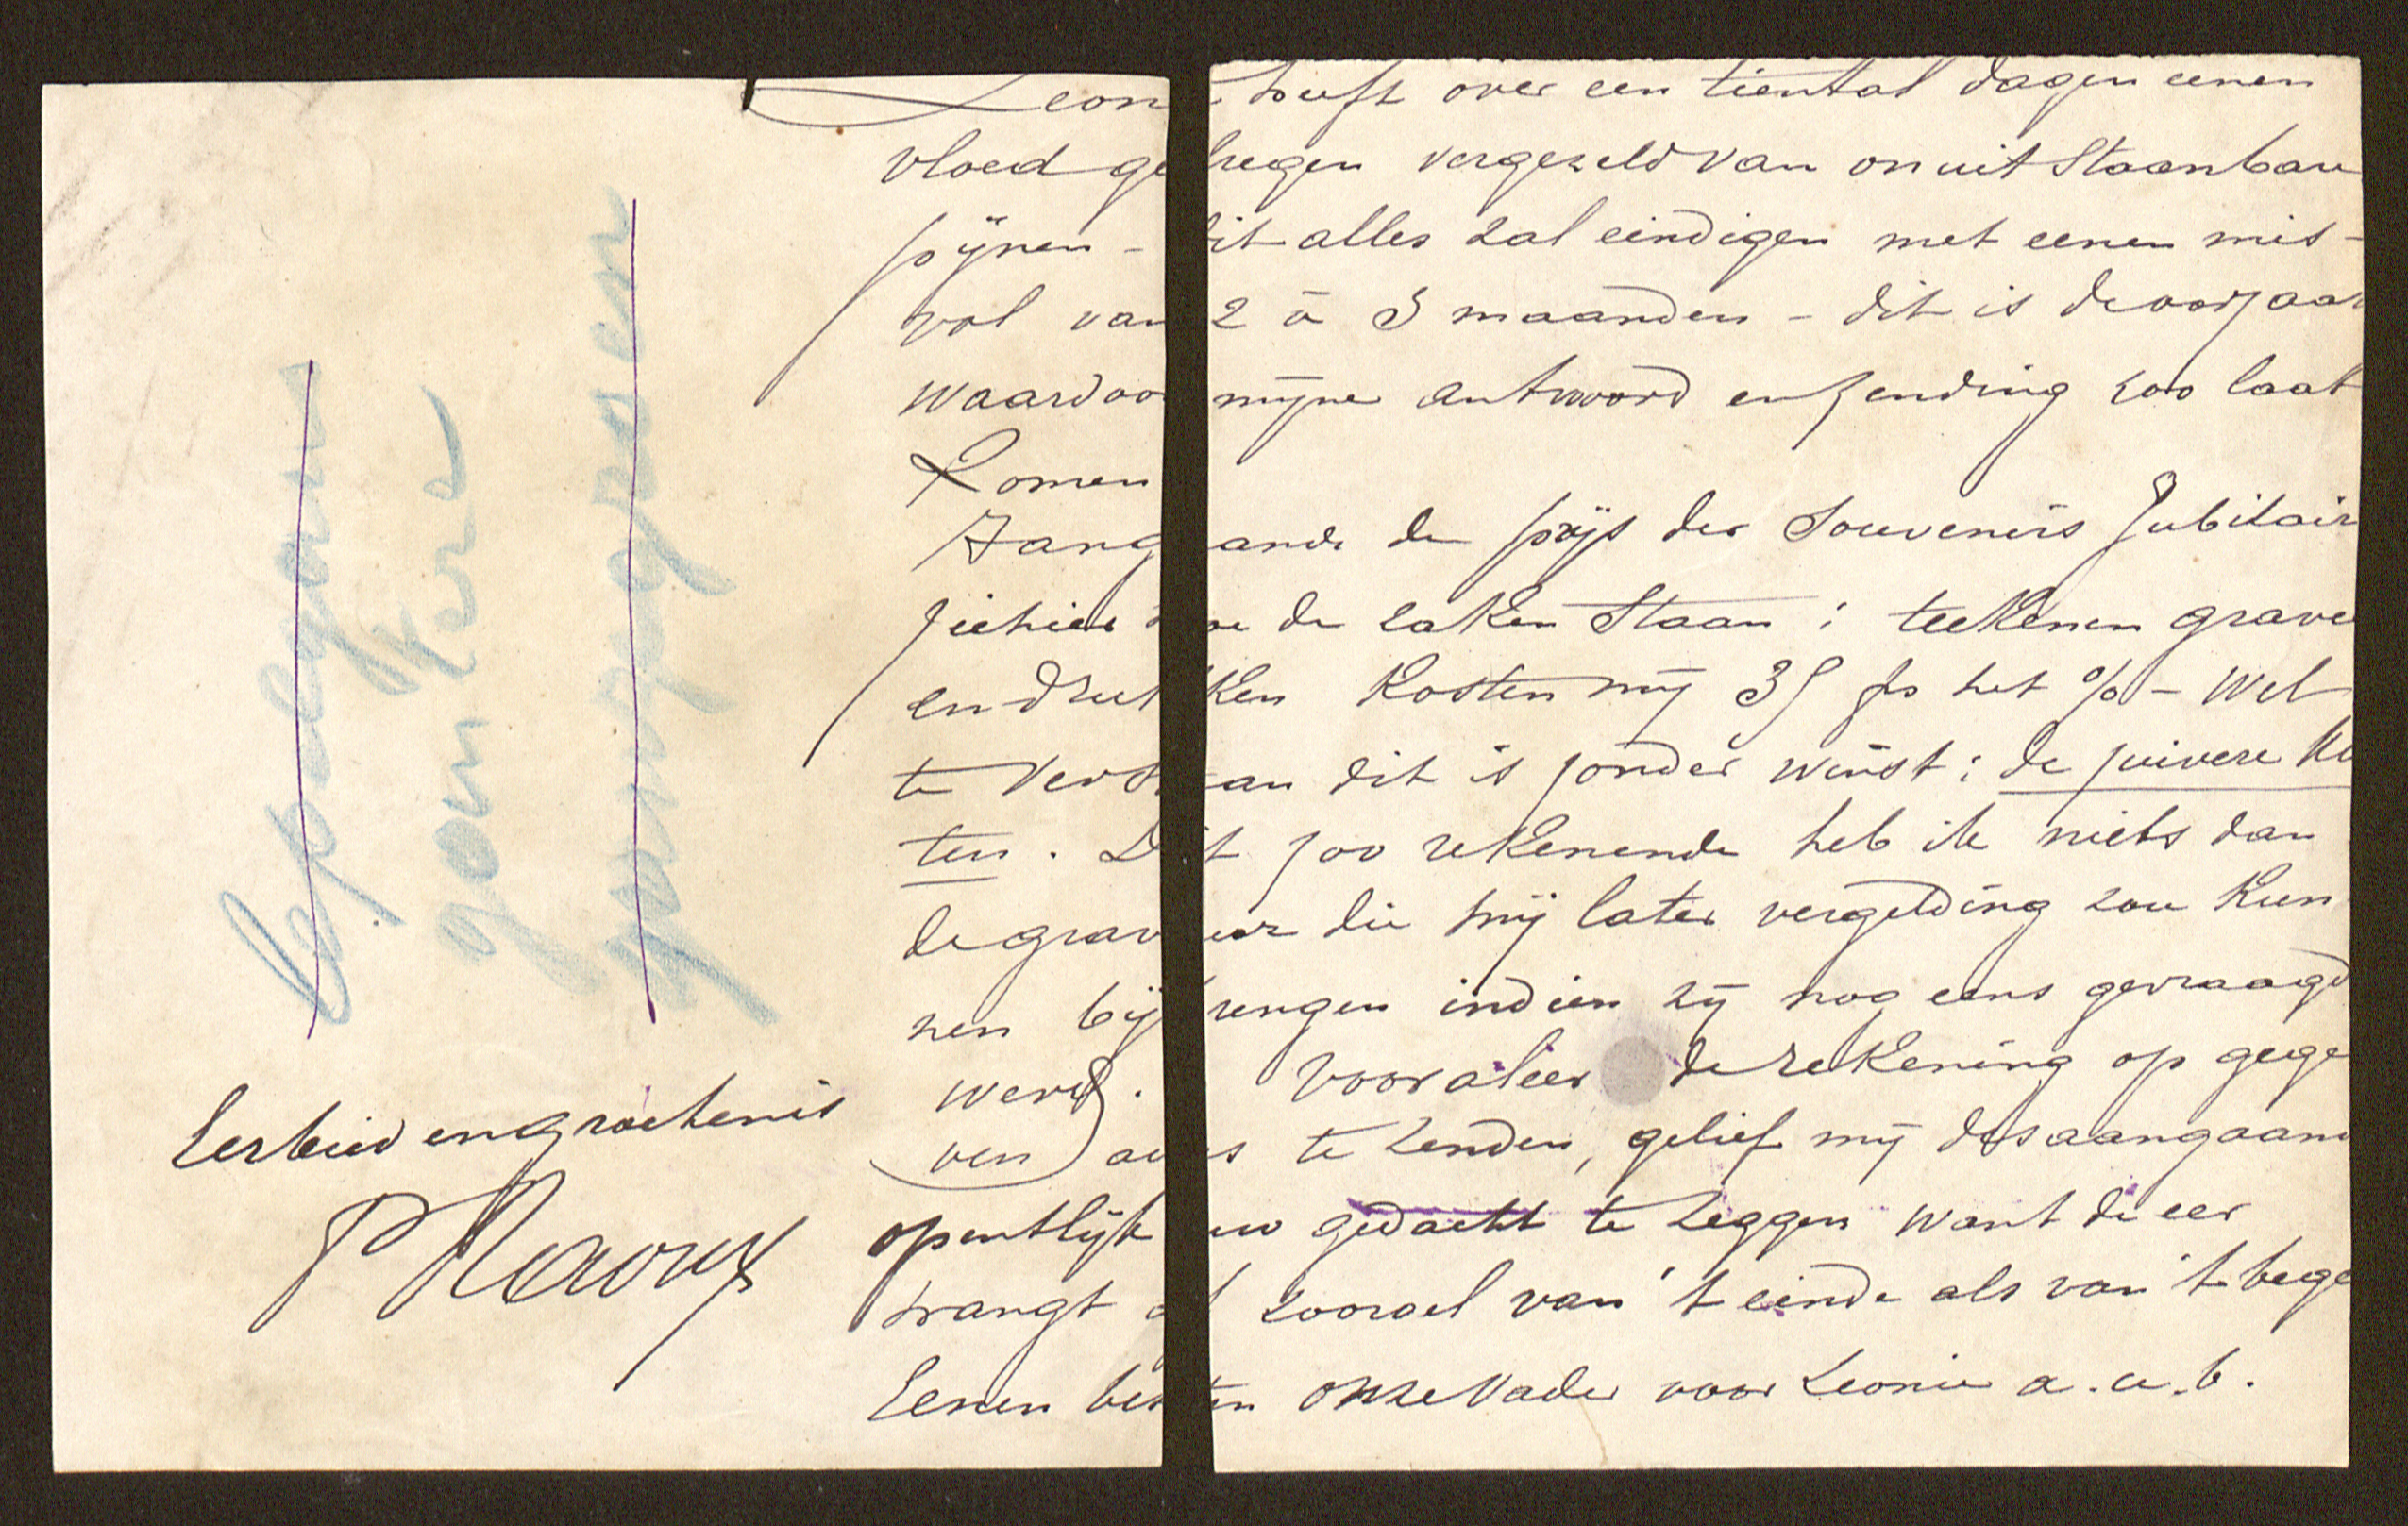 Leon heeft over een tiental dagen eenen
vloed gekregen vergezeld van onuitstaanbare
pijnen - dit alles zal eindigen met eenen mis-
val van 2 à 3 maanden - dit is de oorzaak
waardoor mijne antwoord en zending zoo laat
komen
Aangaande de prijs der Souvenirs Jubilair
ziehier de zaken staan : teekenen grave
en drukken kosten mij 35 fs het % - wel
te verstaan dit is zonder winst : de zuivere ko
ten. Dit zoo rekenende heb ik niets dan
de gravuur die mij later vergelding zou kun
nen bijbrengen indien zij nog eens gevraagd
werd. Vooraleer de rekening op gege
ven aus te zenden, gelief mij desaangaand
opentlijk uw gedacht te zeggen want de eer
prangt zoowel van 't einde als van 't bege
Eenen besten onze Vader voor Leonie a.u.b.
Eerbied en groetenis